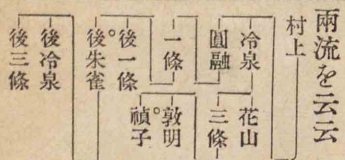 兩流を云云
村上
冷泉
圓融
花山
三條
一條
敦明
禎子
後一條
後朱雀
後冷泉
後三條